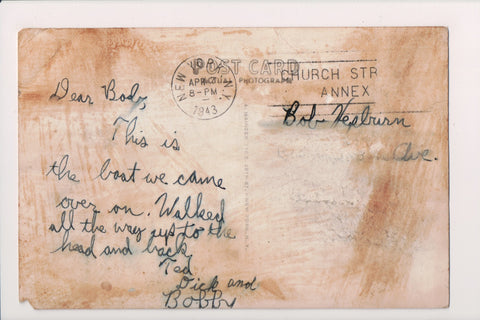 POST CARD
ACTUAL PHOTOGRAPH
NEW YORK, N.Y.
APR
8-PM
1943
CHURCH STR
ANNEX
Dear Bob,
This is
the boat we came
over on. Walked
all the way up to the
head and back
Ted
Dick and
Bobby
Bob Hepburn
Ave.